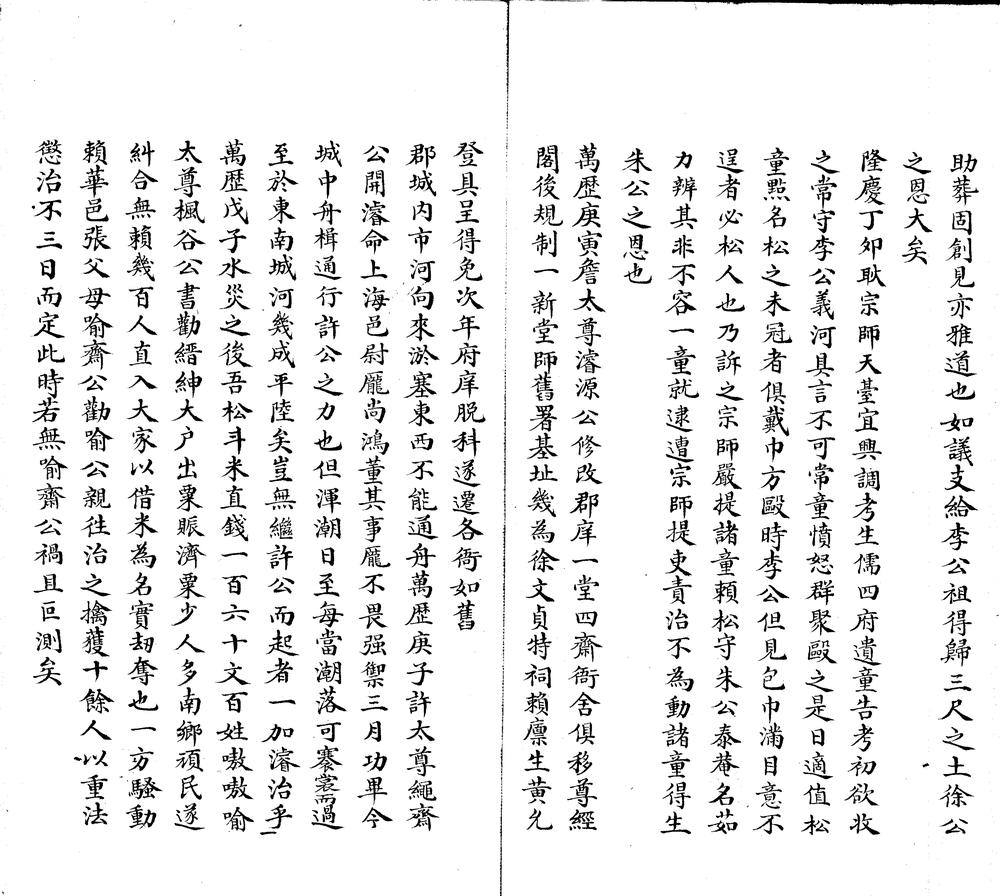 助葬固創見亦雅道也如議支給李公祖得歸三尺之土徐公
之恩大矣
隆慶丁夘耿宗師天臺宜興調考生儒四府遺童告考初欲收
之常守李公義河具言不可常童憤怒群聚毆之是日適值松
童點名松之未冠者俱戴巾方毆時李公但見包巾滿目意不
逞者必松人也乃訴之宗師嚴提諸童賴松守朱公泰菴名茹
力辨其非不容一童就逮遭宗師提吏責治不為動諸童得生
朱公之恩也
萬歷庚寅詹太尊濬源公修改郡庠一堂四齋衙舍俱移尊經
閣後規制一新堂師舊署基址幾為徐文貞特祠賴廪生黃允
登具呈得免次年府庠脱科遂遷各衙如舊
郡城内市河向來淤塞東西不能通舟萬歷庚子許太尊繩齋
公開濬命上海邑尉龎尚鴻董其事龎不畏强禦三月功畢今
城中舟楫通行許公之力也但渾潮日至每當潮落可褰裳而過
至於東南城河幾成平陸矣豈無繼許公而起者一加濬治乎
萬歷戊子水災之後吾松斗米直錢一百六十文百姓嗷嗷喻
太尊楓谷公書勸縉紳大户出粟賑濟粟少人多南鄉頑民遂
糾合無賴幾百人直入大家以借米為名實刼奪也一方騷動
賴華邑張父母喻齋公勸喻公親徃治之擒獲十餘人以重法
懲治不三日而定此時若無喻齋公禍且叵測矣